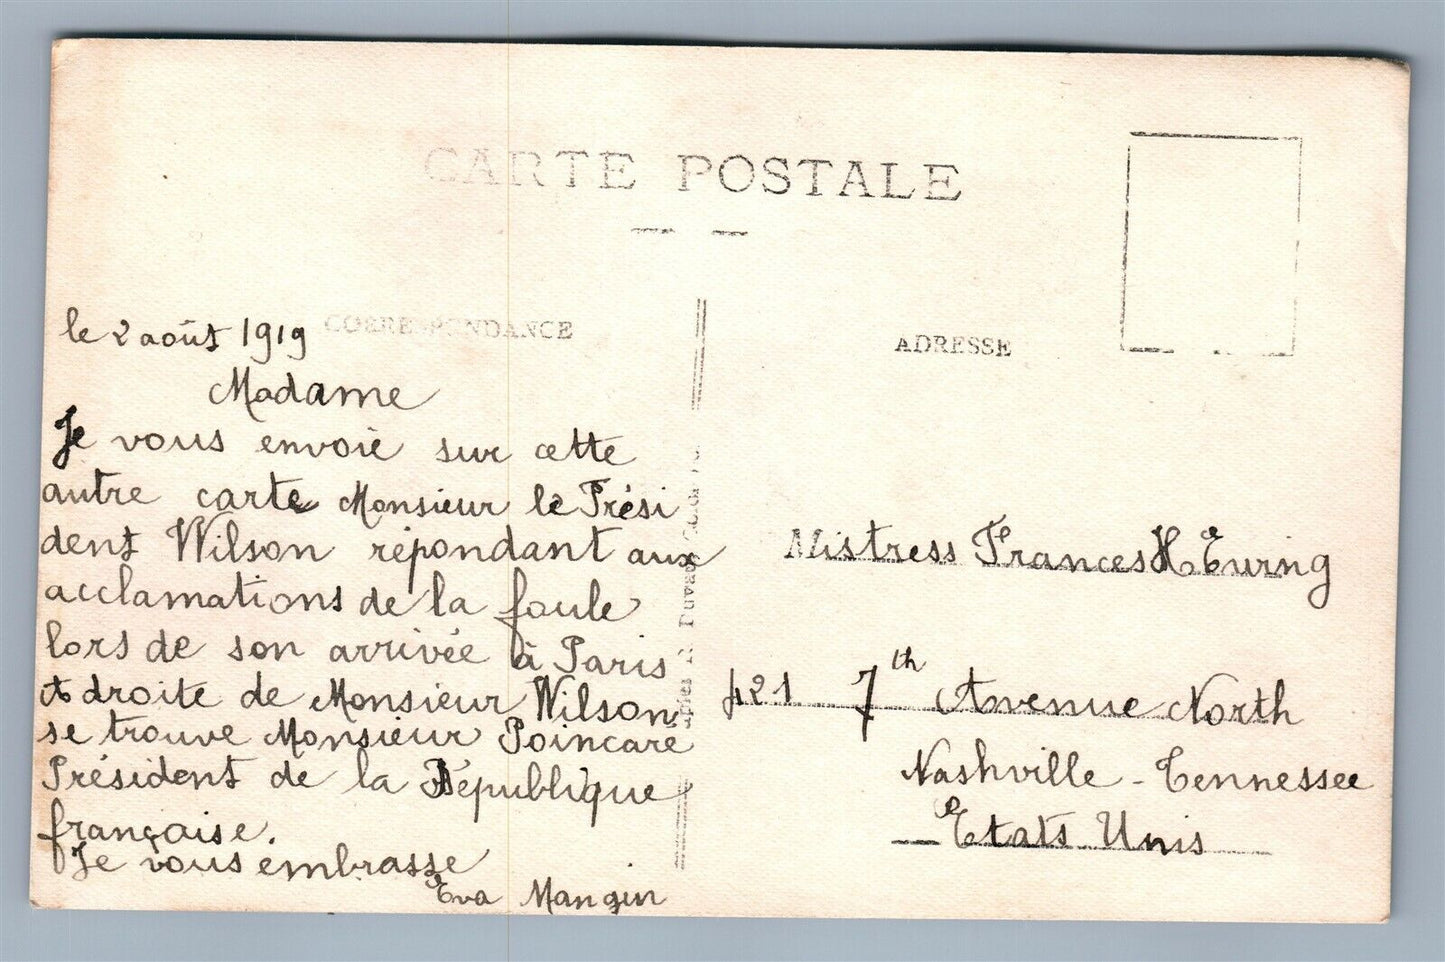 CARTE POSTALE
CORRESPONDANCE
ADRESSE
le 2 août 1919
Madame
Je vous envoie sur cette
autre carte Monsieur le Prési
dent Wilson répondant aux
acclamations de la foule
lors de son arrivée à Paris
A droite de Monsieur Wilson
se trouve Monsieur Poincaré
Président de la République
française.
Je vous embrasse
Eva Mangin
Mistress Frances H Ewing
421 7th Avenue North
Nashville - Tennessee
Etats Unis